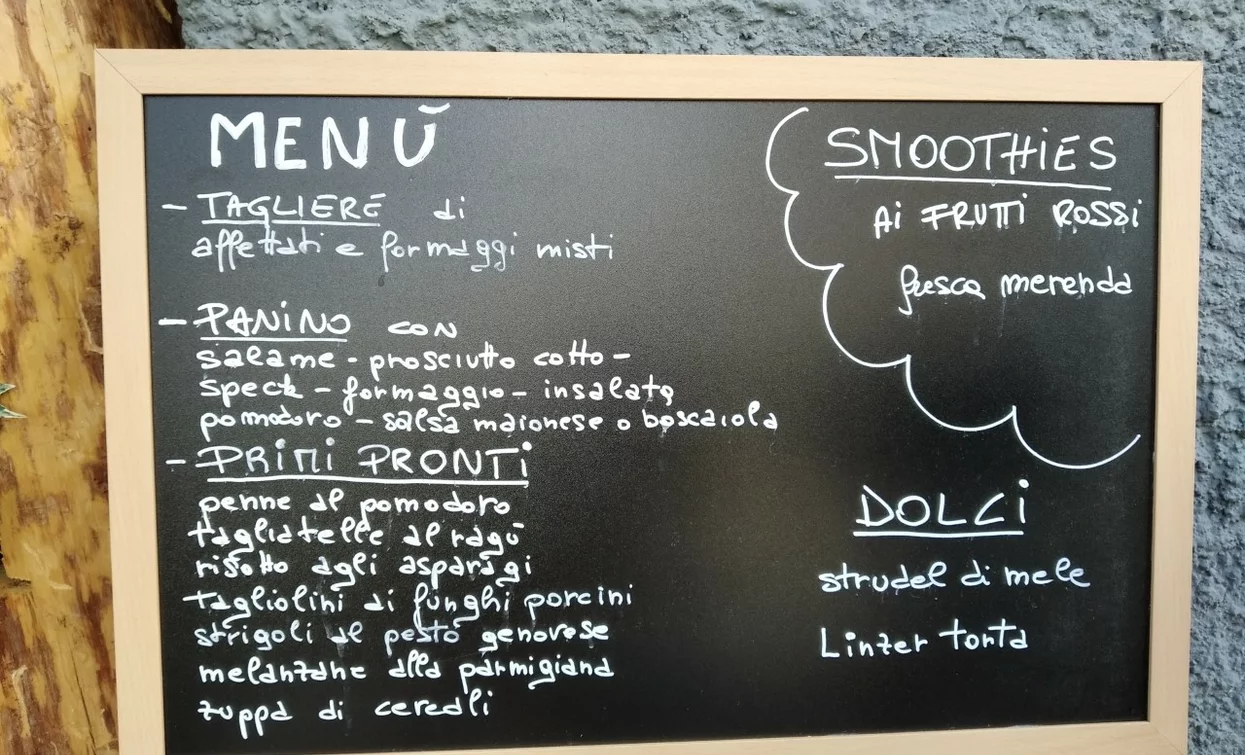 MENÙ
- TAGLIERE di
affettati e formaggi misti
- PANINO CON
salame - prosciutto cotto -
speck - formaggio - insalata
pomodoro - salsa maionese o boscaiola
- PRIMI PRONTI
penne al pomodoro
tagliatelle al ragù
risotto agli asparagi
tagliolini ai funghi porcini
strigoli al pesto genovese
melanzane alla parmigiana
zuppa di cereali
SMOOTHIES
Ai FRUTTI ROSSI
fresca merenda
DOLCI
strudel di mele
Linzer torta